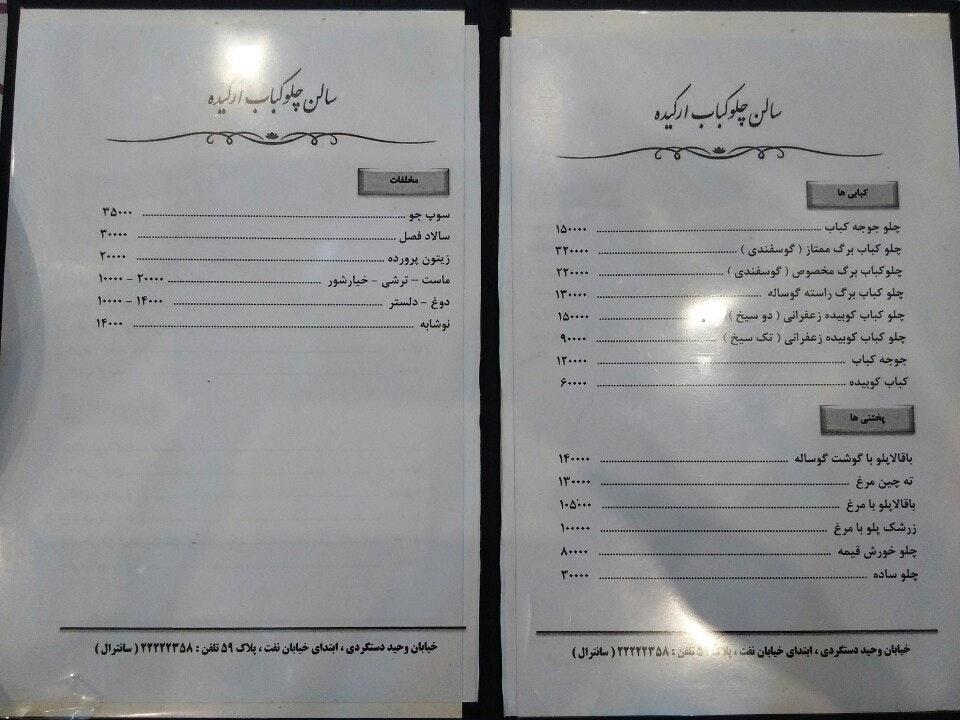 سالن چلوکباب ارکیده
کبابی ها
چلو جوجه کباب ........ ۱۵۰۰۰۰
چلو کباب برگ ممتاز ( گوسفندی ) ........ ۳۲۰۰۰۰
چلوکباب برگ مخصوص ( گوسفندی ) ........ ۲۲۰۰۰۰
چلو کباب برگ راسته گوساله ........ ۱۳۰۰۰۰
چلو کباب کوبیده زعفرانی ( دو سیخ ) ........ ۱۵۰۰۰۰
چلو کباب کوبیده زعفرانی ( تک سیخ ) ........ ۹۰۰۰۰
جوجه کباب ........ ۱۲۰۰۰۰
کباب کوبیده ........ ۶۰۰۰۰
پختنی ها
باقالاپلو با گوشت گوساله ........ ۱۴۰۰۰۰
ته چین مرغ ........ ۱۳۰۰۰۰
باقالاپلو با مرغ ........ ۱۰۵۰۰۰
زرشک پلو با مرغ ........ ۱۰۰۰۰۰
چلو خورش قیمه ........ ۸۰۰۰۰
چلو ساده ........ ۳۰۰۰۰
خیابان وحید دستگردی ، ابتدای خیابان نفت ، پلاک ۵۹ تلفن : ۲۲۲۲۲۳۵۸ ( سانترال )
سالن چلوکباب ارکیده
مخلفات
سوپ جو ........ ۳۵۰۰۰
سالاد فصل ........ ۳۰۰۰۰
زیتون پرورده ........ ۲۰۰۰۰
ماست – ترشی - خیارشور ........ ۲۰۰۰۰ - ۱۰۰۰۰
دوغ - دلستر ........ ۱۴۰۰۰ - ۱۰۰۰۰
نوشابه ........ ۱۴۰۰۰
خیابان وحید دستگردی ، ابتدای خیابان نفت ، پلاک ۵۹ تلفن : ۲۲۲۲۲۳۵۸ ( سانترال )